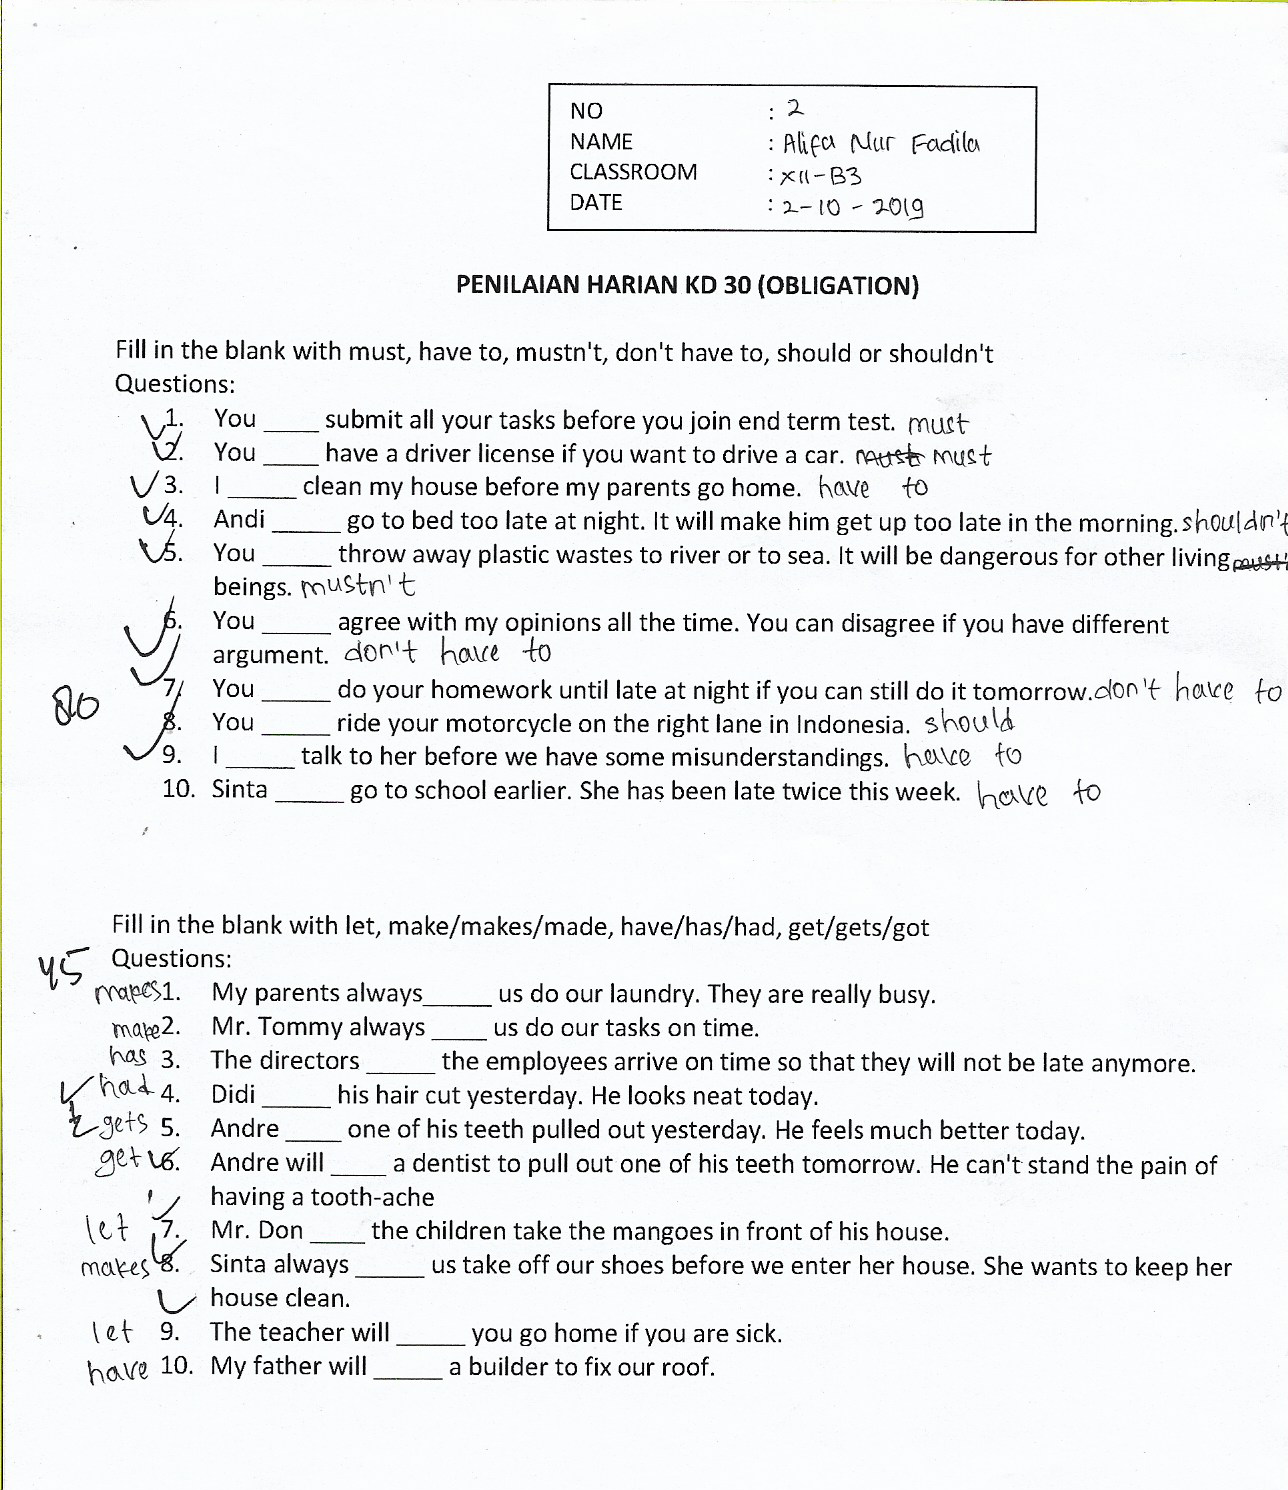 NO : 2
NAME : Alifa Nur Fadila
CLASSROOM : XII-B3
DATE : 2-10-2019
PENILAIAN HARIAN KD 30 (OBLIGATION)
Fill in the blank with must, have to, mustn't, don't have to, should or shouldn't
Questions:
1. You ____ submit all your tasks before you join end term test. must
2. You ____ have a driver license if you want to drive a car. must must
3. I _____ clean my house before my parents go home. have to
4. Andi _____ go to bed too late at night. It will make him get up too late in the morning. shouldn't
5. You _____ throw away plastic wastes to river or to sea. It will be dangerous for other living
beings. mustn't
6. You _____ agree with my opinions all the time. You can disagree if you have different
argument. don't have to
7. You _____ do your homework until late at night if you can still do it tomorrow. don't have to
80
8. You _____ ride your motorcycle on the right lane in Indonesia. should
9. I _____ talk to her before we have some misunderstandings. have to
10. Sinta _____ go to school earlier. She has been late twice this week. have to
Fill in the blank with let, make/makes/made, have/has/had, get/gets/got
45 Questions:
makes 1. My parents always_____ us do our laundry. They are really busy.
make 2. Mr. Tommy always ____ us do our tasks on time.
has 3. The directors _____ the employees arrive on time so that they will not be late anymore.
had 4. Didi _____ his hair cut yesterday. He looks neat today.
gets 5. Andre ____ one of his teeth pulled out yesterday. He feels much better today.
get 6. Andre will ____ a dentist to pull out one of his teeth tomorrow. He can't stand the pain of
having a tooth-ache
let 7. Mr. Don ____ the children take the mangoes in front of his house.
makes 8. Sinta always _____ us take off our shoes before we enter her house. She wants to keep her
house clean.
let 9. The teacher will _____ you go home if you are sick.
have 10. My father will _____ a builder to fix our roof.